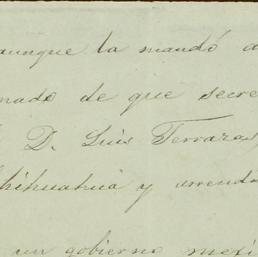 aunque la mandó a
mado de que secre
D. Luis Terrazas
Chihuahua y arrenda
un gobierno meji